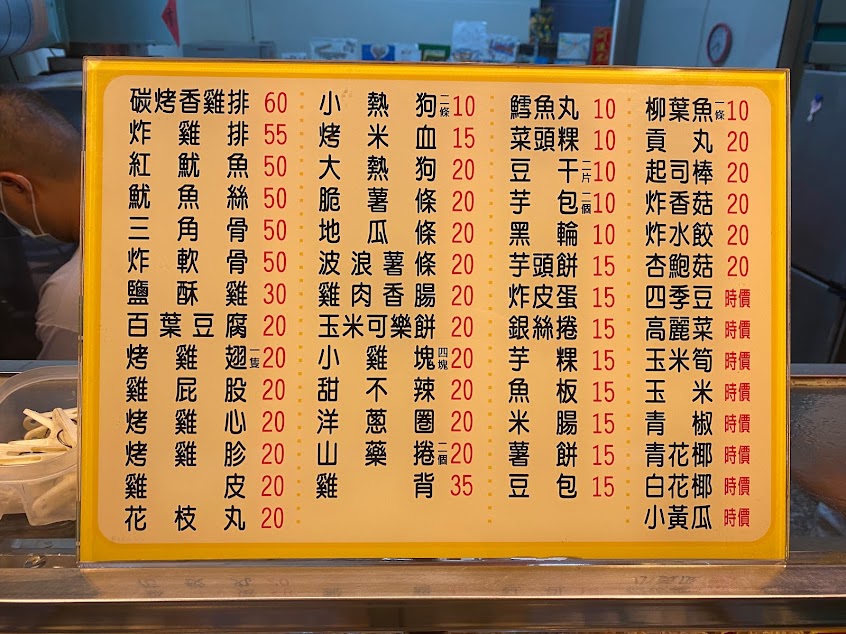 碳烤香雞排 60
炸雞排 55
紅魷魚 50
魷魚絲 50
三角骨 50
炸軟骨 50
鹽酥雞 30
百葉豆腐 20
烤雞翅一隻 20
雞屁股 20
烤雞心 20
烤雞胗 20
雞皮 20
花枝丸 20
小熱狗二條 10
烤米血 15
大熱狗 20
脆薯條 20
地瓜條 20
波浪薯條 20
雞肉香腸 20
玉米可樂餅 20
小雞塊四塊 20
甜不辣 20
洋蔥圈 20
山藥捲二個 20
雞背 35
鱈魚丸 10
菜頭粿 10
豆干一片 10
芋包二個 10
黑輪 10
芋頭餅 15
炸皮蛋 15
銀絲捲 15
芋粿 15
魚板 15
米腸 15
薯餅 15
豆包 15
柳葉魚一條 10
貢丸 20
起司棒 20
炸香菇 20
炸水餃 20
杏鮑菇 20
四季豆 時價
高麗菜 時價
玉米筍 時價
玉米 時價
青椒 時價
青花椰 時價
白花椰 時價
小黃瓜 時價